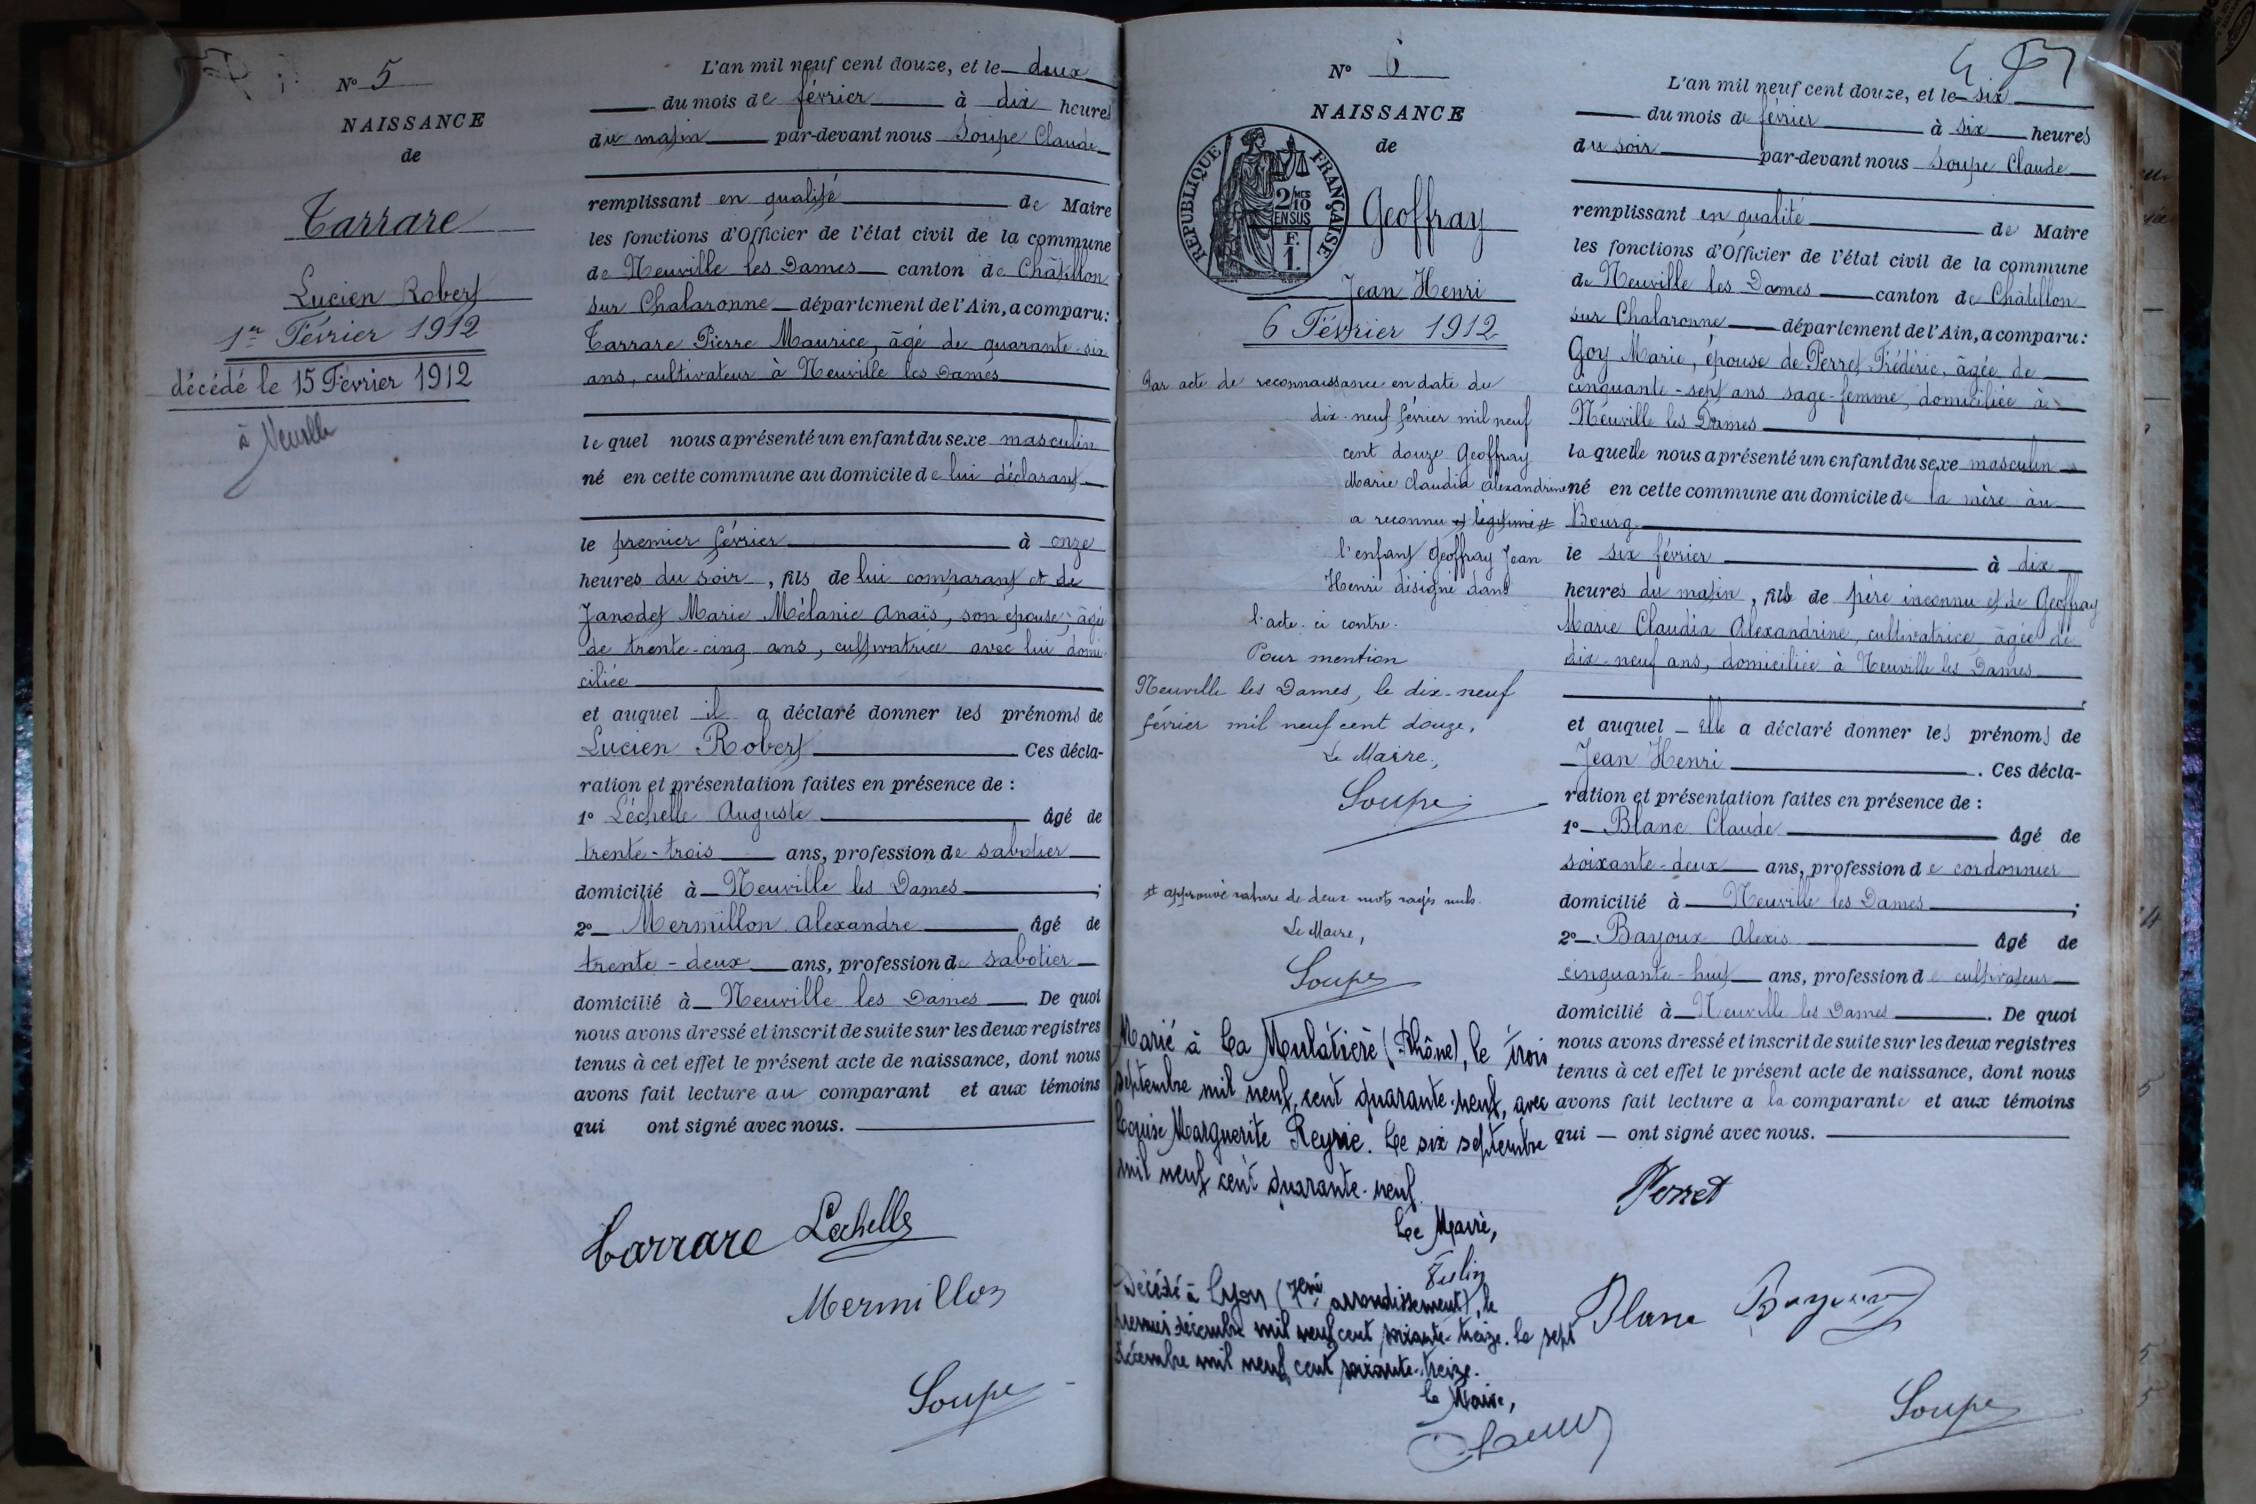 N° 5
NAISSANCE
de
Carrare
Lucien Robert
1er Février 1912
décédé le 15 Février 1912
à Neuville
L'an mil neuf cent douze, et le deux
du mois de février à dix heures
du matin par-devant nous Soupe Claude
remplissant en qualité de Maire
les fonctions d'Officier de l'état civil de la commune
de Neuville les Dames canton de Châtillon
sur Chalaronne département de l'Ain, a comparu:
Carrare Pierre Maurice, âgé de quarante-six
ans, cultivateur à Neuville les Dames
lequel nous a présenté un enfant du sexe masculin
né en cette commune au domicile de lui déclarant
le premier février à onze
heures du soir, fils de lui comparant et de
Janodet Marie Mélanie Anaïs, son épouse, âgée
de trente-cinq ans, cultivatrice avec lui domi-
ciliée
et auquel il a déclaré donner les prénoms de
Lucien Robert Ces décla-
ration et présentation faites en présence de :
1° Léchelle Auguste âgé de
trente-trois ans, profession de sabotier
domicilié à Neuville les Dames ;
2° Mermillon Alexandre âgé de
trente-deux ans, profession de sabotier
domicilié à Neuville les Dames. De quoi
nous avons dressé et inscrit de suite sur les deux registres
tenus à cet effet le présent acte de naissance, dont nous
avons fait lecture au comparant et aux témoins
qui ont signé avec nous.
Carrare Lechelle
Mermillon
Soupe
N° 6
NAISSANCE
de
REPUBLIQUE FRANÇAISE
2/10 EN SUS
F.
1.
Geoffray
Jean Henri
6 Février 1912
Par acte de reconnaissance en date du
dix-neuf février mil neuf
cent douze Geoffray
Marie Claudia Alexandrine
a reconnu et légitimé #
l'enfant Geoffray Jean
Henri désigné dans
l'acte ci contre.
Pour mention
Neuville les Dames, le dix-neuf
février mil neuf cent douze,
Le Maire,
Soupe
# approuvé rature de deux mots rayés nuls.
Le Maire,
Soupe
Marié à La Mulatière (Rhône), le trois
septembre mil neuf cent quarante-neuf, avec
Louise Marguerite Reyrie. Le six septembre
mil neuf cent quarante-neuf.
Le Maire,
Décédé à Lyon (7eme arrondissement), le
premier décembre mil neuf cent soixante-treize. Le sept
décembre mil neuf cent soixante-treize.
Le Maire,
L'an mil neuf cent douze, et le six
du mois de février à six heures
du soir par-devant nous Soupe Claude
remplissant en qualité de Maire
les fonctions d'Officier de l'état civil de la commune
de Neuville les Dames canton de Châtillon
sur Chalaronne département de l'Ain, a comparu:
Goy Marie, épouse de Perret Frédéric, âgée de
cinquante-sept ans sage-femme, domiciliée à
Neuville les Dames
laquelle nous a présenté un enfant du sexe masculin
né en cette commune au domicile de la mère au
Bourg
le six février à dix
heures du matin, fils de père inconnu et de Geoffray
Marie Claudia Alexandrine, cultivatrice âgée de
dix-neuf ans, domiciliée à Neuville les Dames
et auquel elle a déclaré donner les prénoms de
Jean Henri. Ces décla-
ration et présentation faites en présence de :
1° Blanc Claude âgé de
soixante-deux ans, profession de cordonnier
domicilié à Neuville les Dames ;
2° Bayoux Alexis âgé de
cinquante-huit ans, profession de cultivateur
domicilié à Neuville les Dames. De quoi
nous avons dressé et inscrit de suite sur les deux registres
tenus à cet effet le présent acte de naissance, dont nous
avons fait lecture a la comparante et aux témoins
qui ont signé avec nous.
Perret
Blanc Bayoux
Soupe